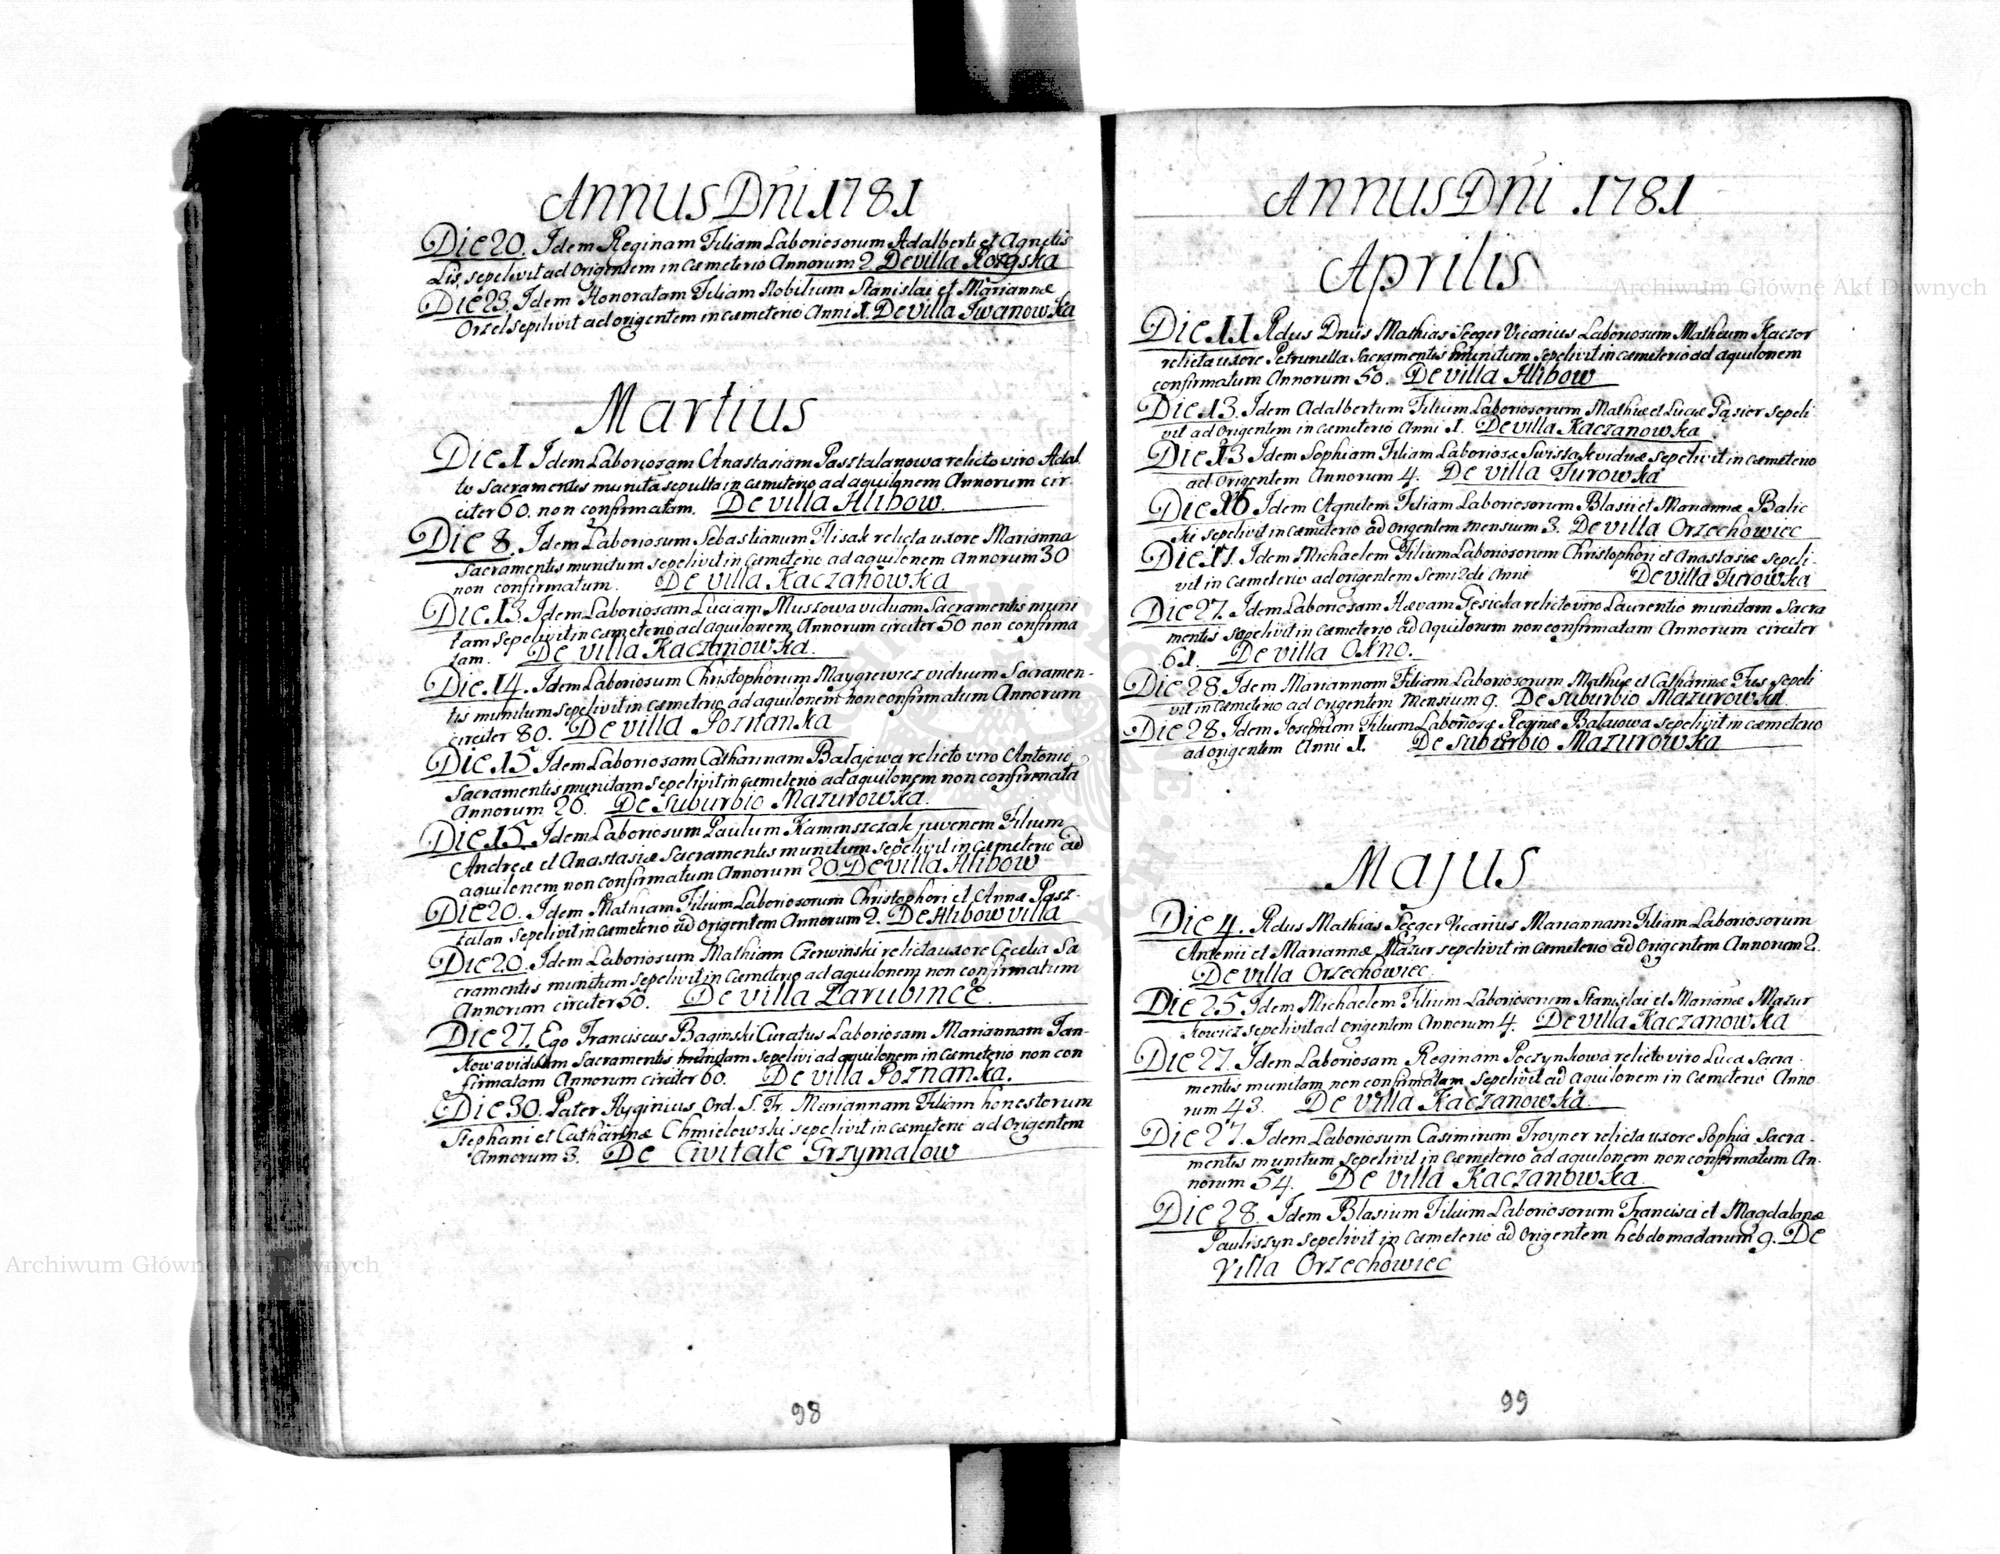 Annus Dni 1781
Die 20. Idem Reginam Filiam Laboriosorum Adalberti et Agnetis
Lis, sepelivit ad Origentem in Cæmeterio Annorum 2. De villa
Die 23. Idem Honoratam Filiam Nobilium Stanislai et Mariannæ
Orzel sepelivit ad origentem in cæmeterio Anni 1. De villa Iwanowka
Martius
Die 1 Idem Laboriosam Anastasiam Pasztalanowa relicto viro Adal
to Sacramentis munita sepulta in cæmeterio ad aquilonem Annorum cir
citer 60. non confirmatam. De villa Hlibow.
Die 8. Idem Laboriosum Sebastianum Flisak relicta uxore Marianna
Sacramentis munitum sepelivit in Cæmeterio ad aquilonem Annorum 30
non confirmatum. De villa Kaczanowka
Die 13. Idem Laboriosam Luciam Mussowa viduam Sacramentis muni
tam sepelivit in cæmeterio ad aquilonem Annorum circiter 50 non confirma
tam. De villa Kaczanowka.
Die 14. Idem Laboriosum Christophorum Maygrewicz viduum Sacramen-
tis munitum sepelivit in cæmeterio ad aquilonem non confirmatum Annorum
circiter 80. De villa Poznanka
Die 15 Idem Laboriosam Catharinam Balajewa relicto viro Antonio
Sacramentis munitam sepelivit in cæmeterio ad aquilonem non confirmata
Annorum 26. De Suburbio Mazurowka.
Die 15. Idem Laboriosum Paulum Kaminszczak juvenem Filium
Andreæ et Anastasiæ Sacramentis munitum sepelivit in cæmeterio ad
aquilonem non confirmatum Annorum 20. De villa Hlibow
Die 20. Idem Mathiam Filium Laboriosorum Christophori et Annæ Pasz-
talan sepelivit in cæmeterio ad Origentem Annorum 2. De Hlibow villa
Die 20. Idem Laboriosum Mathiam Czerwinski relicta uxore Cecelia Sa
cramentis munitum sepelivit in Cæmeterio ad aquilonem non confirmatum
Annorum circiter 50. De villa Zarubince.
Die 27. Ego Franciscus Baginski Curatus Laboriosam Mariannam Jan-
kowa viduam Sacramentis munitam sepelivi ad aquilonem in Cæmeterio non con
firmatam Annorum circiter 60. De villa Poznanka.
Die 30. Pater Hyginius Ord. S. Fr. Mariannam Filiam honestorum
Stephani et Catharinæ Chmielowski sepelivit in cæmeterio ad Origentem
Annorum 3. De Civitate Grzymalow
98
Annus Dni 1781
Aprilis
Die 11 Rdus Dnus Mathias Seeger Vicarius Laboriosum Matheum Kaczor
relicta uxore Petrunella Sacramentis munitum sepelivit in cæmeterio ad aquilonem
confirmatum Annorum 50. De villa Hlibow
Die 13. Idem Adalbertum Filium Laboriosorum Mathiæ et Luciæ Pąsior sepeli
vit ad Origentem in cæmeterio Anni 1. De villa Kaczanowka
Die 13 Idem Sophiam Filiam Laboriosæ Swistak viduæ sepelivit in cæmeterio
ad Origentem Annorum 4. De villa Turowka
Die 16 Idem Agnetem Filiam Laboriosorum Blasii et Mariannæ Balic
ki sepelivit in cæmeterio ad origentem mensium 3. De villa Orzechowiec
Die 17. Idem Michaelem Filium Laboriosorum Christophori et Anastasiæ sepeli-
vit in cæmeterio ad origentem Anni De villa Turowka
Die 27. Idem Laboriosam Hævam Gesicka relicto viro Laurentio munitam Sacra
mentis sepelivit in Cæmeterio ad Aquilonem non confirmatam Annorum circiter
61. De villa Okno.
Die 28. Idem Mariannam Filiam Laboriosorum Mathiæ et Catharinæ Fus sepeli
vit in cæmeterio ad Origentem Mensium 9. De Suburbio Mazurowka.
Die 28. Idem Josephum Filium Laboriosæ Reginæ Balaiowa sepelivit in cæmeterio
ad origentem Anni 1. De Suburbio Mazurowka
Majus
Die 4. Rdus Mathias Seeger Vicarius Mariannam Filiam Laboriosorum
Antonii et Mariannæ Mazur sepelivit in cæmeterio ad Origentem Annorum 2.
De villa Orzechowiec.
Die 25. Idem Michaelem Filium Laboriosorum Stanislai et Mariannæ Mazur
kowicz sepelivit ad Origentem Annorum 4. De villa Kaczanowka
Die 27. Idem Laboriosam Reginam Poczynkowa relicto viro Luca Sacra-
mentis munitam non confirmatam sepelivit ad Aquilonem in Cæmeterio Anno
rum 43. De villa Kaczanowka.
Die 27. Idem Laboriosum Casimirum Troyner relicta uxore Sophia Sacra-
mentis munitum sepelivit in cæmeterio ad aquilonem non confirmatum An-
norum 54. De villa Kaczanowka.
Die 28. Idem Blasium Filium Laboriosorum Francisci et Magdalenæ
Pauliszyn sepelivit in Cæmeterio ad Origentem hebdomadarum 9. De
Villa Orzechowiec
99
Archiwum Główne Akt Dawnych
Archiwum Główne Akt Dawnych